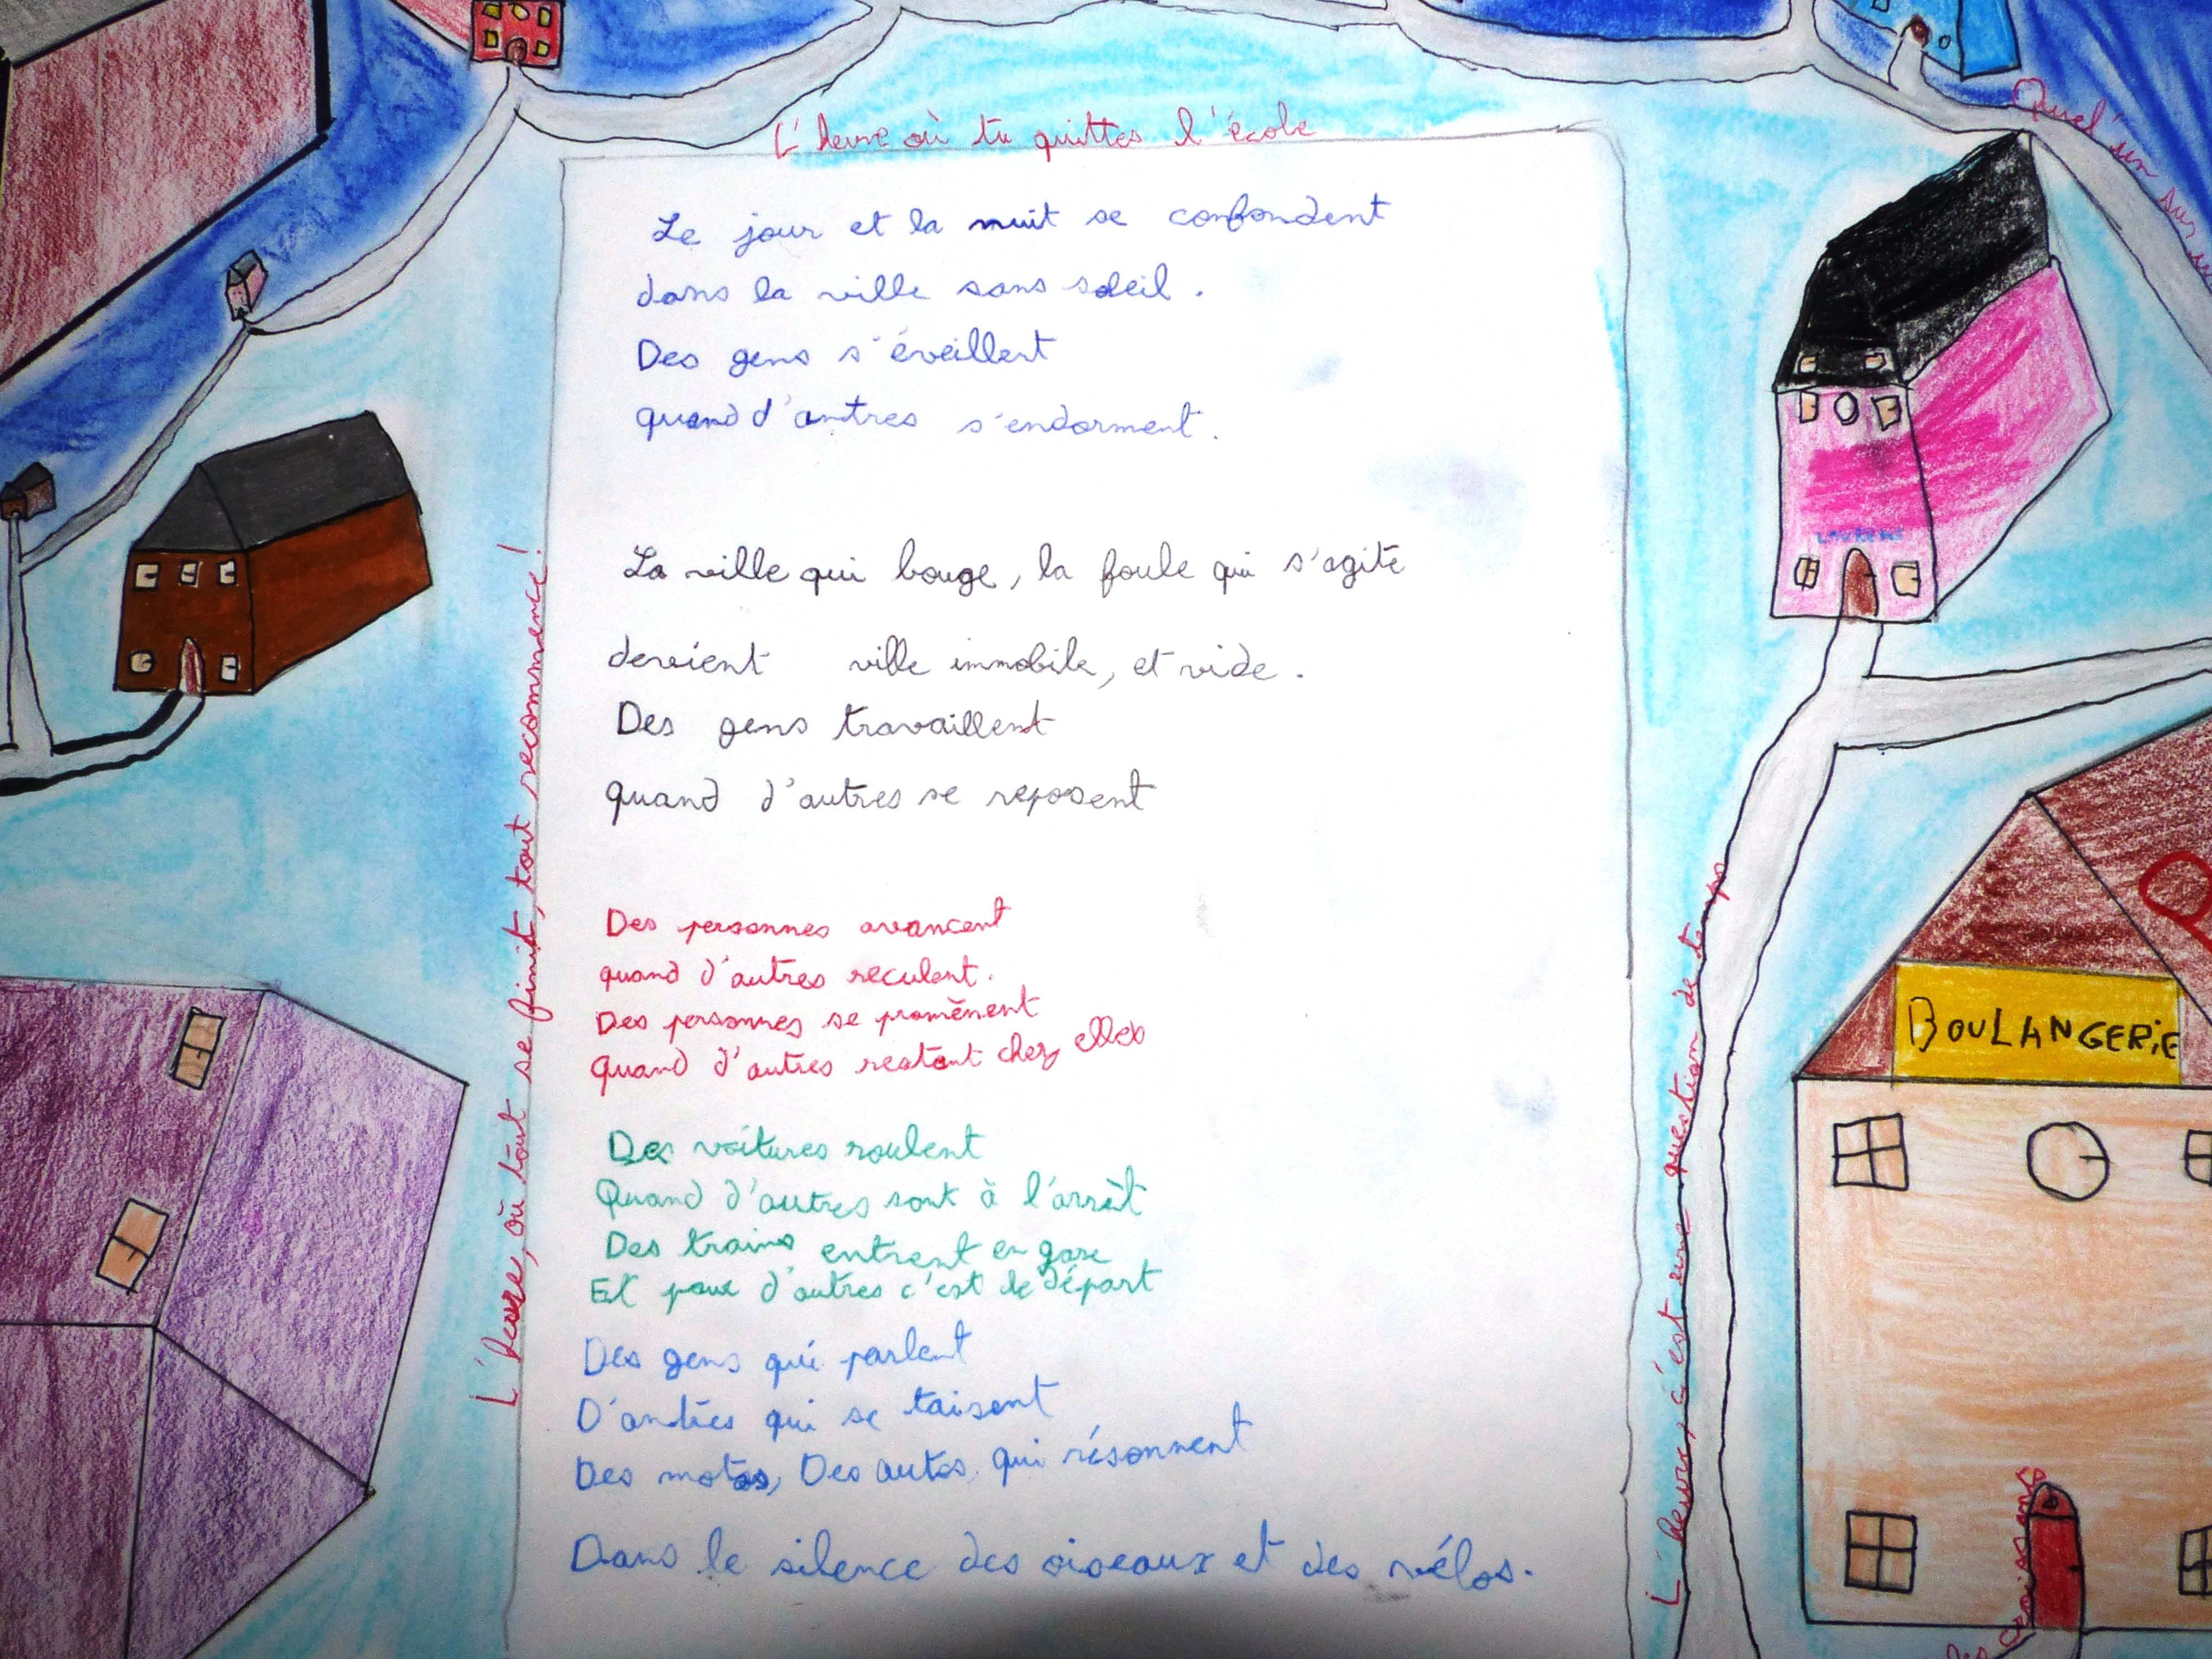 L'heure où tu quittes l'école
Quel'un sur
Le jour et la nuit se confondent
dans la ville sans soleil.
Des gens s'éveillent
quand d'autres s'endorment.
La ville qui bouge, la foule qui s'agite
devient ville immobile, et vide.
Des gens travaillent
quand d'autres se reposent
Des personnes avancent
quand d'autres reculent.
Des personnes se promènent
quand d'autres restent chez elles
Des voitures roulent
Quand d'autres sont à l'arrêt
Des trains entrent en gare
Et pour d'autres c'est le départ
Des gens qui parlent
D'autres qui se taisent
Des motos, Des autos qui résonnent
Dans le silence des oiseaux et des vélos.
L'heure, où tout se finit, tout recommence!
L'heure, c'est une question de temps
BOULANGERIE
Des